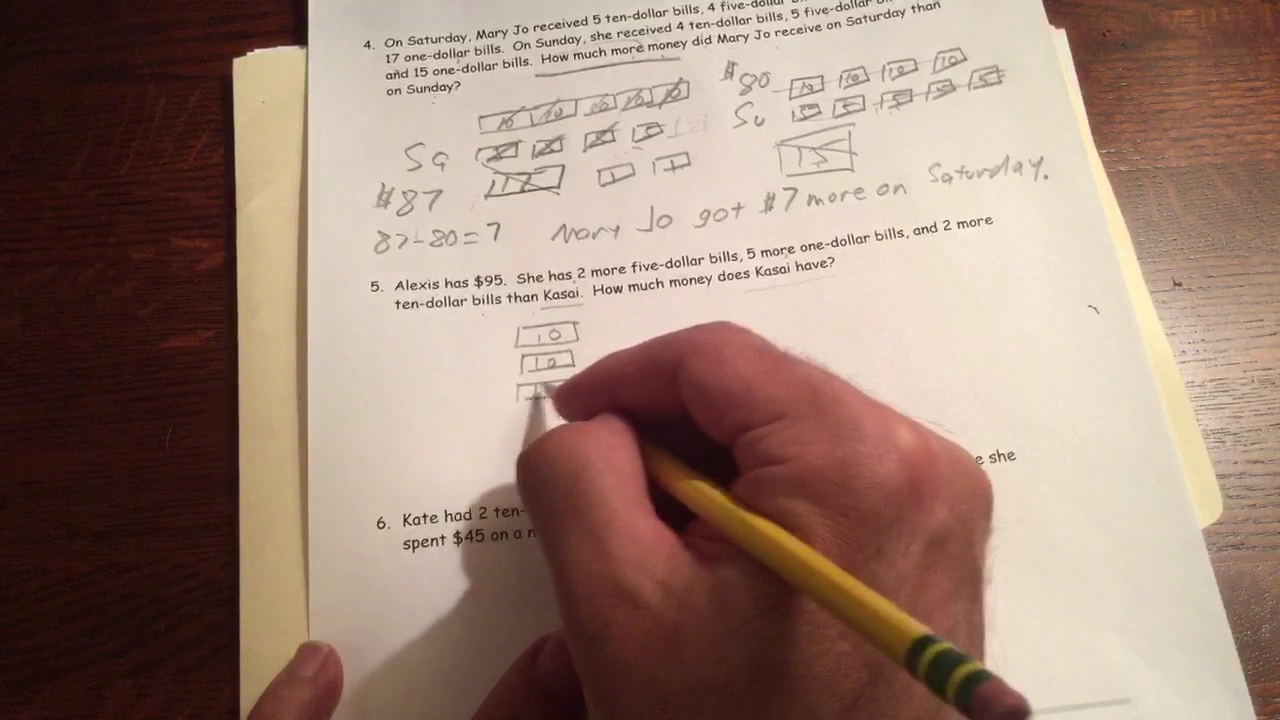 4. On Saturday, Mary Jo received 5 ten-dollar bills, 4 five-dollar
17 one-dollar bills. On Sunday, she received 4 ten-dollar bills, 5 five-dollar
and 15 one-dollar bills. How much more money did Mary Jo receive on Saturday than
on Sunday?
10 10 10 10 10
$80 10 10 10 10
Sa 5
Su 5 5 5 5 5
$87 1 1
15
87-80=7 Mary Jo got $7 more on Saturday.
5. Alexis has $95. She has 2 more five-dollar bills, 5 more one-dollar bills, and 2 more
ten-dollar bills than Kasai. How much money does Kasai have?
10
10
e she
6. Kate had 2 ten-
spent $45 on a